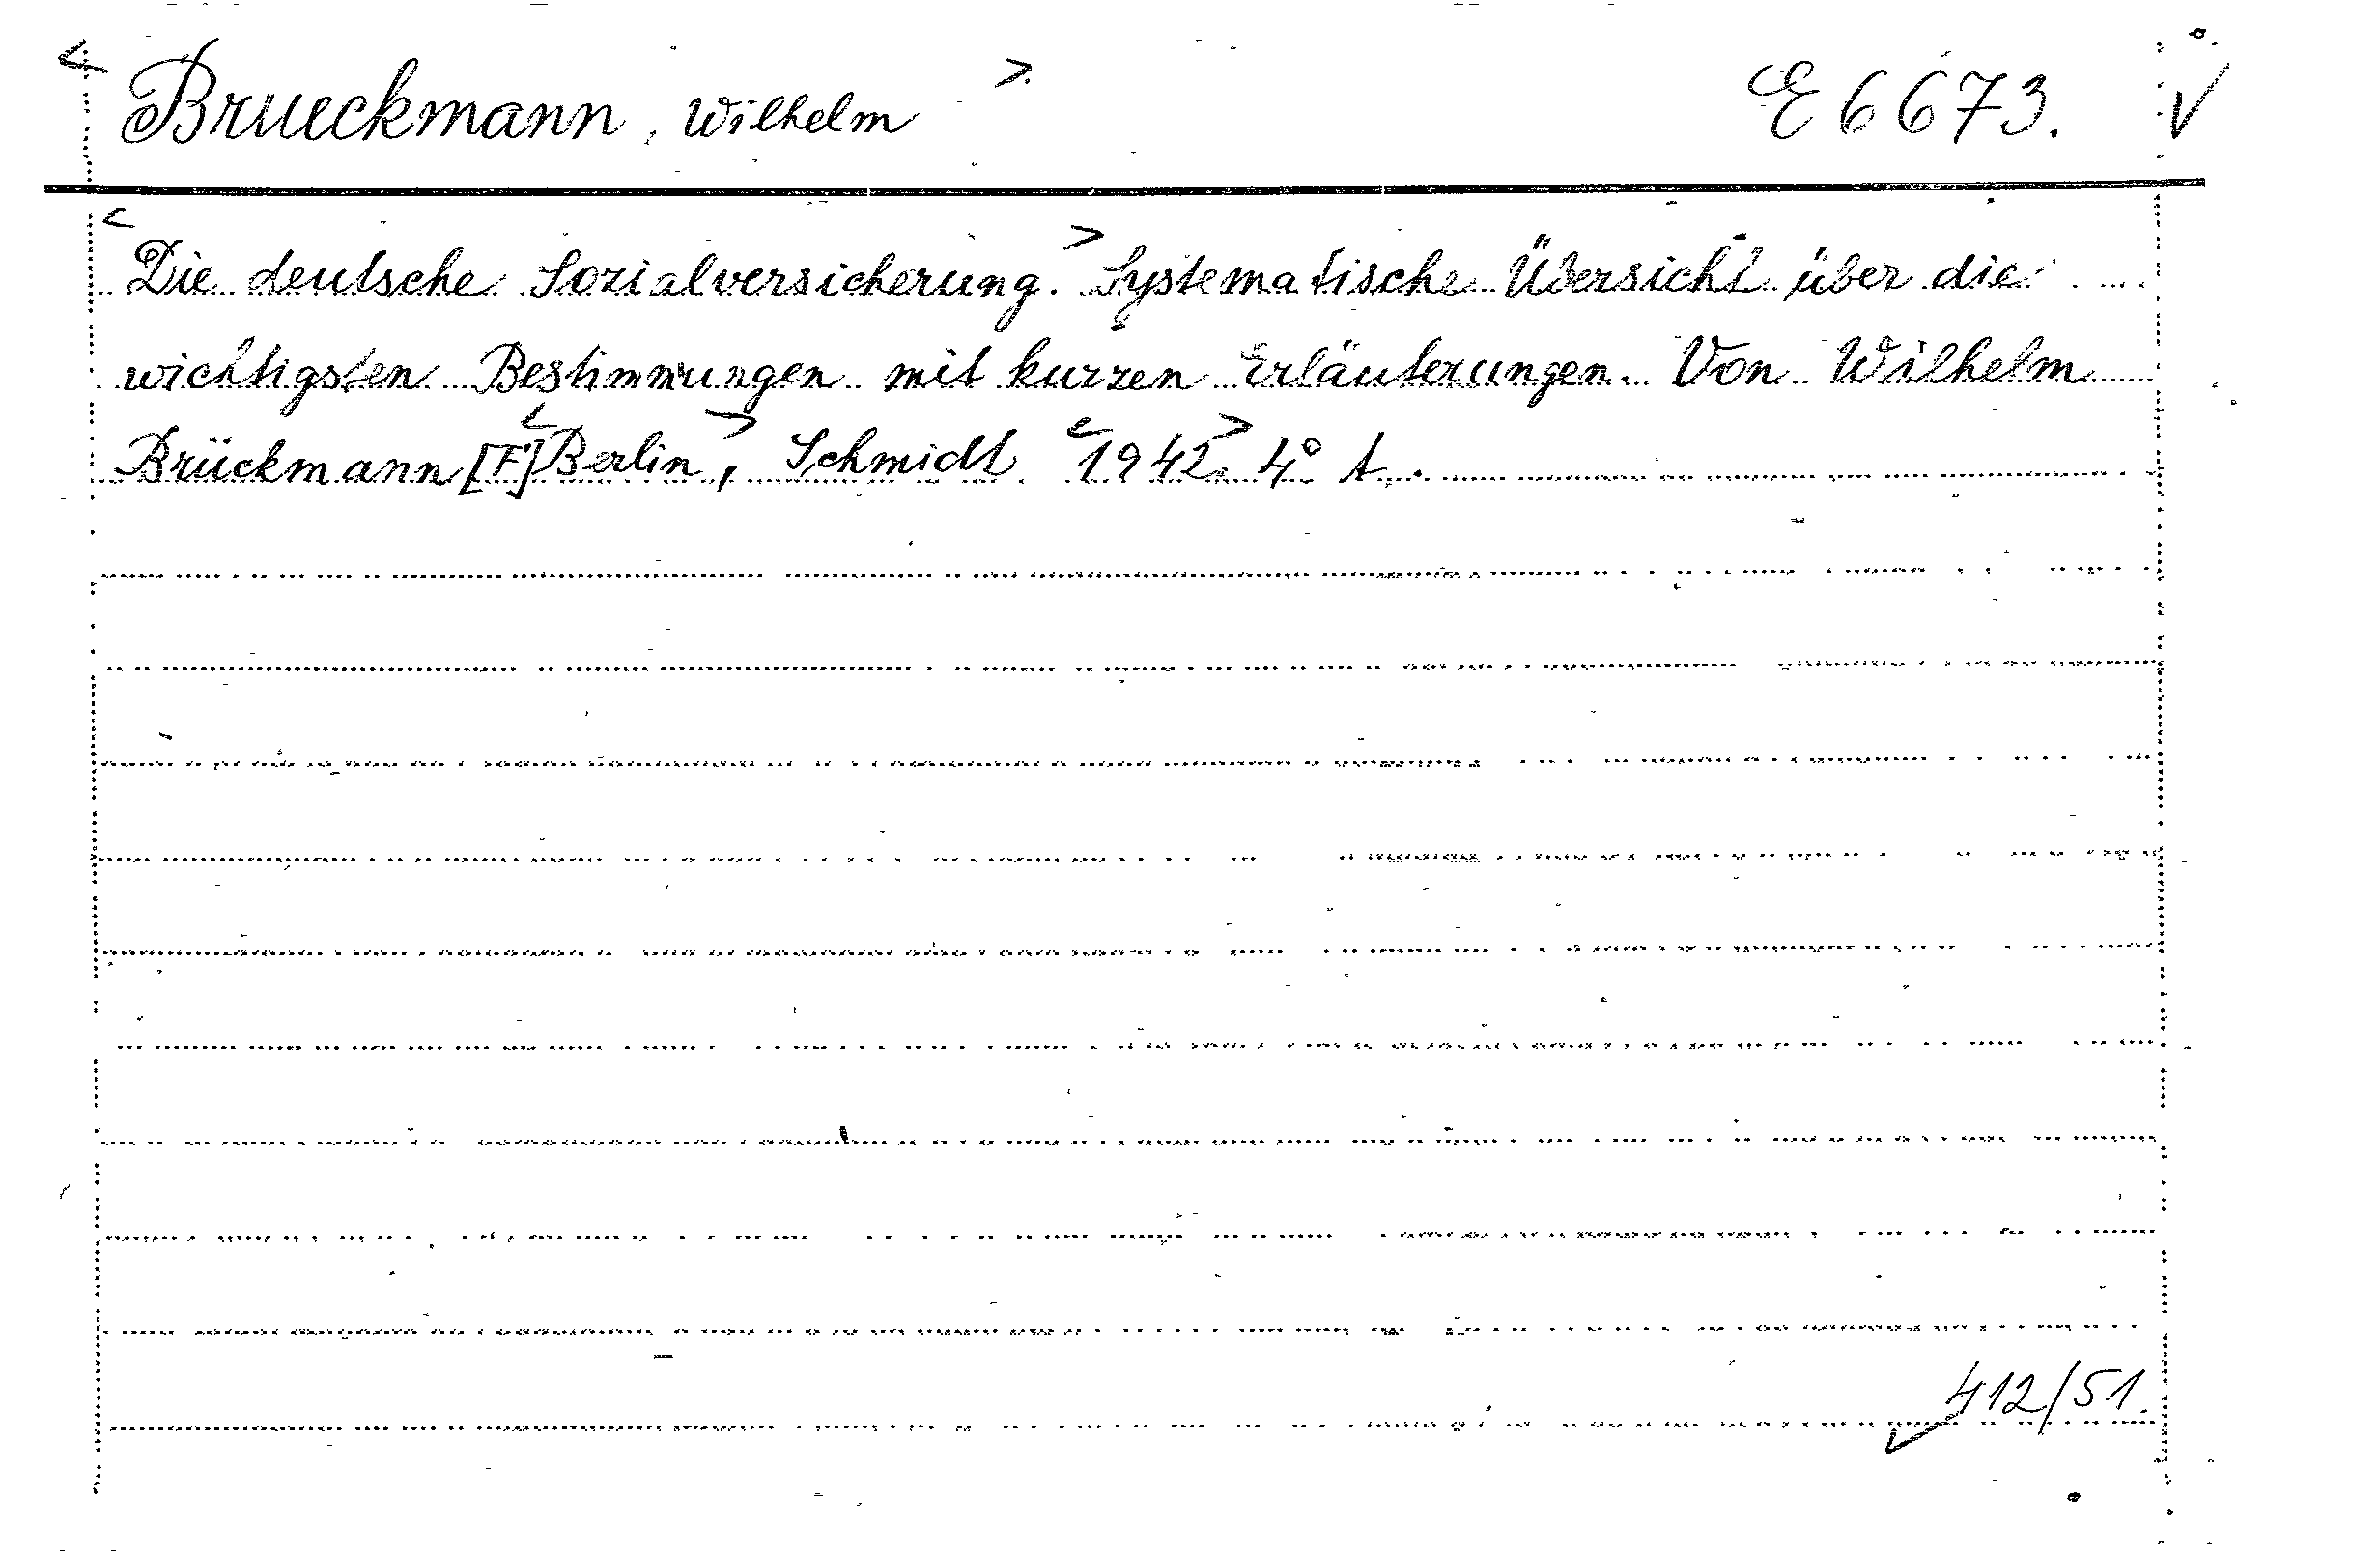 < Brueckmann, Wilhelm > E 6673. √
< Die deutsche Sozialversicherung. > Systematische Übersicht über die
wichtigsten Bestimmungen mit kurzen Erläuterungen. Von Wilhelm
Brückmann [F] < Berlin >, Schmidt < 1942. > 4°
412/51.